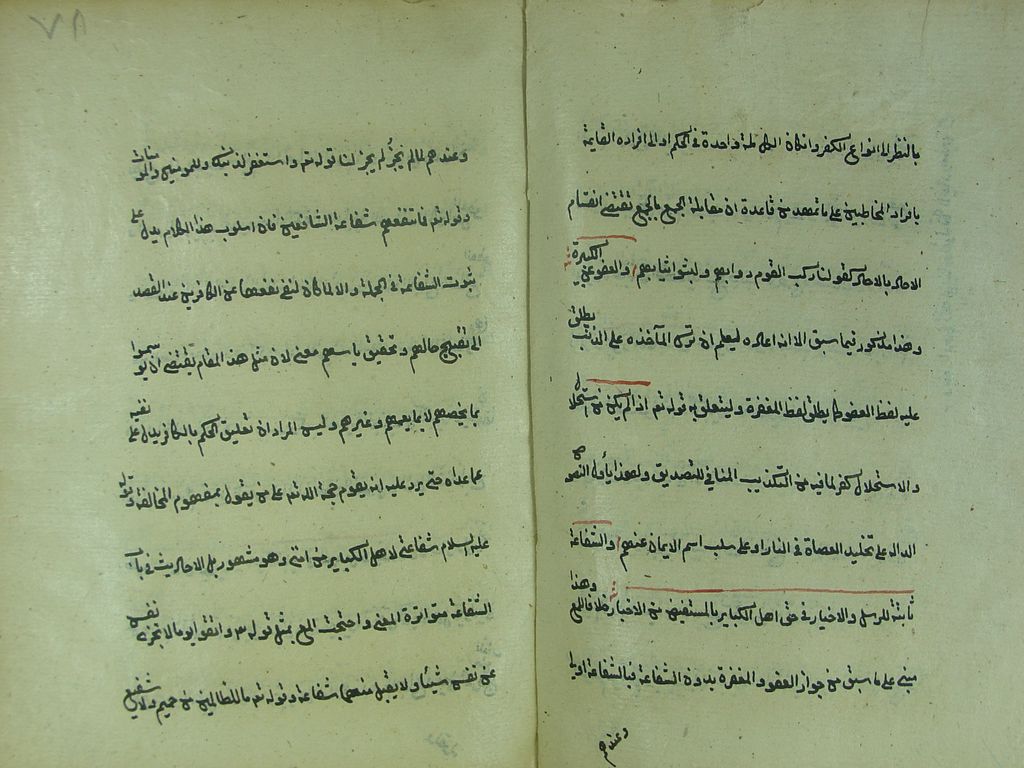 بالنظر الى انواع الكفر وان كان الكل ملة واحدة في الحكم او الى افراده القايمة
بافراد المخاطبين على ما تمهد من قاعدة ان مقابلة الجمع بالجمع تقتضي انقسام
الاحاد بالاحاد كقولنا ركب القوم دوابهم ولبسوا ثيابهم والعفو عن الكبيرة
وهذا مذكور فيما سبق الا انه اعاده ليعلم ان ترك المآخذه على الذنب يطلق
عليه لفظ العفو كما يطلق لفظ المغفرة وليتعلق به قوله تع اذا لم يكن عن استحلال
والاستحلال كفر لما فيه من التكذيب المنافي للتصديق وبهذا يأول النصوص
الدالة على تخليد العصاة في النار او على سلب اسم الايمان عنهم والشفاعة
ثابتة للرسل والاخيار في حق اهل الكباير بالمستفيض من الاخبار خلافا للمع وهذا
مبني على ما سبق من جواز العفو والمغفرة بدون الشفاعة فبالشفاعة اولى
وعندهم
٧٨
وعندهم لما لم يجز لم يجز لنا قوله تع واستغفر لذنبك وللمومنين والمومنات
وقوله تع فما تنفعهم شفاعة الشافعين فان اسلوب هذا الكلام يدل على
ثبوت الشفاعة في الجملة والا لما كان لنفي نفعها عن الكافرين عند القصد
الى تقبيح حالهم وتحقيق باسهم معنى لان مثل هذا المقام يقتضي ان يوسموا
بما يخصهم لا بما يعمهم وغيرهم وليس المراد ان تعليق الحكم بالكافر يدل على نفيه
عما عداه حتى يرد عليه انه يقوم حجة الله تع على من يقول بمفهوم المخالفة وقوله
عليه السلام شفاعتي لاهل الكباير من امتي وهو مشهور بل الاحاديث في باب
الشفاعة متواترة المعنى واحتجت المع بمثل قوله تع واتقوا يوما لا تجزي نفس
عن نفس شيئا ولا يقبل منها شفاعة وقوله تع ما للظالمين من حميم ولا شفيع